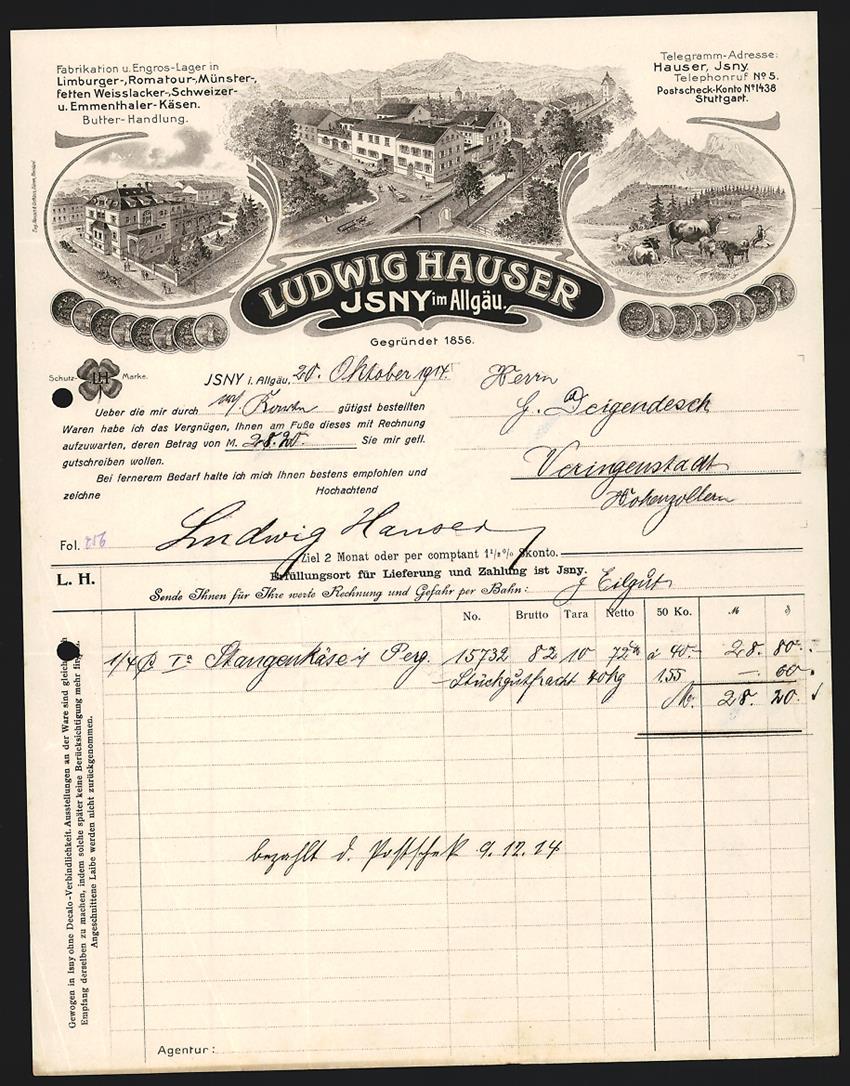 Fabrikation u. Engros-Lager in
Limburger-, Romatour-, Münster-,
fetten Weisslacker-, Schweizer-
u. Emmenthaler-Käsen.
Butter-Handlung.
Telegramm-Adresse:
Hauser, Jsny.
Telephonruf No 5.
Postscheck-Konto No 1438
Stuttgart.
LUDWIG HAUSER
JSNY im Allgäu.
Gegründet 1856.
Schutz- LH Marke.
JSNY i. Allgäu, 20. Oktober 1914.
Herrn
G. Deigendesch
Veringenstadt
Hohenzollern
Ueber die mir durch gütigst bestellten
Waren habe ich das Vergnügen, Ihnen am Fuße dieses mit Rechnung
aufzuwarten, deren Betrag von M. 28.20. Sie mir gefl.
gutschreiben wollen.
Bei fernerem Bedarf halte ich mich Ihnen bestens empfohlen und
zeichne Hochachtend
Fol. 256
Ludwig Hauser
Ziel 2 Monat oder per comptant 1 1/2 % Skonto.
L. H.
Erfüllungsort für Lieferung und Zahlung ist Jsny.
Sende Ihnen für Ihre werte Rechnung und Gefahr per Bahn: Eilgut
No. Brutto Tara Netto 50 Ko. M ₰
1/4 Ia Stangenkäse i/ Perg. 15732 82 10 72 à 40.- 28. 80.
Stückgutfracht 40 kg 1.55 —. 60
M. 28. 20.
bezahlt d. Postschek 9.12.14
Gewogen in Isny ohne Decalo-Verbindlichkeit. Ausstellungen an der Ware sind gleich
Empfang derselben zu machen, indem solche später keine Berücksichtigung mehr
Angeschnittene Laibe werden nicht zurückgenommen.
Agentur: